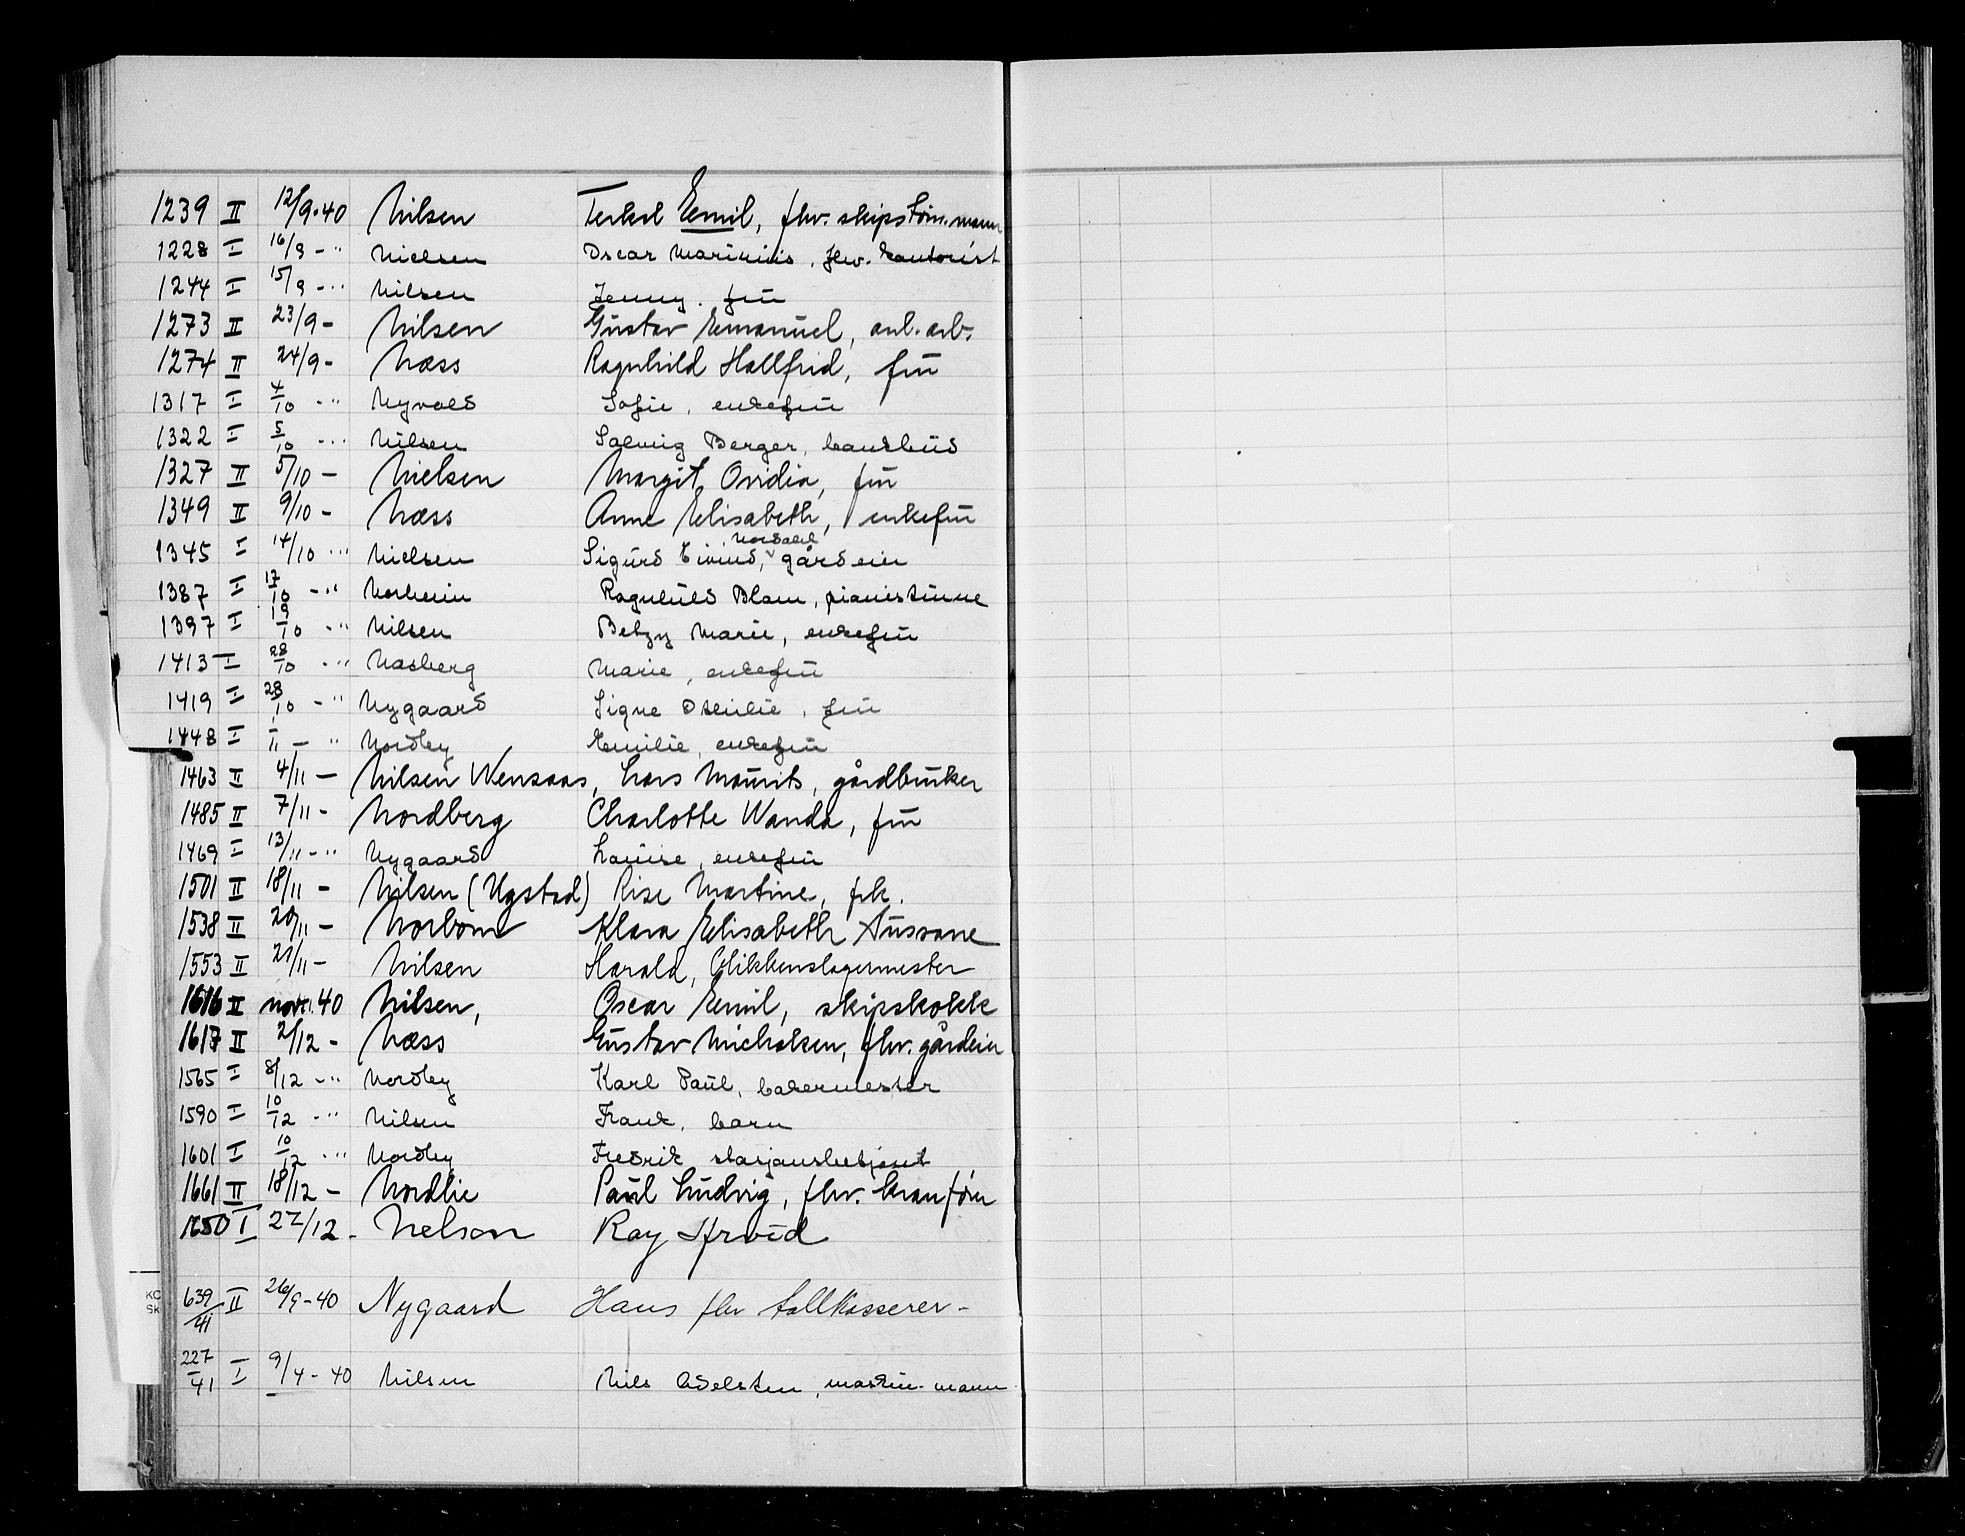 1239 II 12/9-40 Nilsen Terkel Emil, fhv. skipstøm.mann
1228 I 16/9 - " Nielsen Oscar Marinius, fhv. kontorist
1244 I 15/9 - " Nilsen Jenny. frü
1273 II 23/9 - Nilsen Güstav Emanüel, anl. arb.
1274 II 24/9 - Næss Ragnhild Hallfrid, frü
1317 I 4/10 - " Nyvold Sofie, enkefrü
1322 I 5/10 - " Nilsen Solveig Berger, bankbüd
1327 II 5/10 - Nielsen Margit Ovidia, frü
1349 II 9/10 - Næss Anne Elisabeth, enkefrü
Nordahl
1345 I 14/10 - " Nielsen Sigürd Eivind, v gårdeier
1387 I 17/10 - " Norheim Ragnhild Blom, pianistinne
1397 I 19/10 - " Nilsen Betzy Marie, enkefrü
1413 I 28/10 - " Nasberg Marie, enkefrü
1419 I 28/10 - " Nygaard Signe Otilie, frü
1448 I 1/11 - " Nordby Emilie, enkefrü
1463 II 4/11 - Nilsen Wensaas, Lars Maürits, gårdbrüker
1485 II 7/11 - Nordberg Charlotte Wanda, frü
1469 I 13/11 - " Nygaard Louise, enkefrü
1501 II 18/11 - Nilsen (Nystad) Lise Martine, frk.
1538 II 20/11 - Norbom Klara Elisabeth Süsanne
1553 II 21/11 - Nilsen Harald, blikkenslagermester
1616 II nov. 40 Nilsen, Oscar Emil, skipskokk
1617 II 2/12 - Næss Güstav Nicholsen, fhv. gårdeier
1565 I 8/12 - " Nordby Karl Paül, bakermester
1590 I 10/12 - " Nilsen Frank, barn
1601 I 10/12 - " Nordby Fredrik stasjonsbetjent
1661 II 18/12 - Nordlie Paül Lüdvig, fhv. kranfør
1650 I 27/12 - Nelson Ray
639/41 II 26/9-40 Nygaard Hans fhv tollkasserer -
227/41 I 9/4 - 40 Nilsen Nils Adelsten, maskin. mann